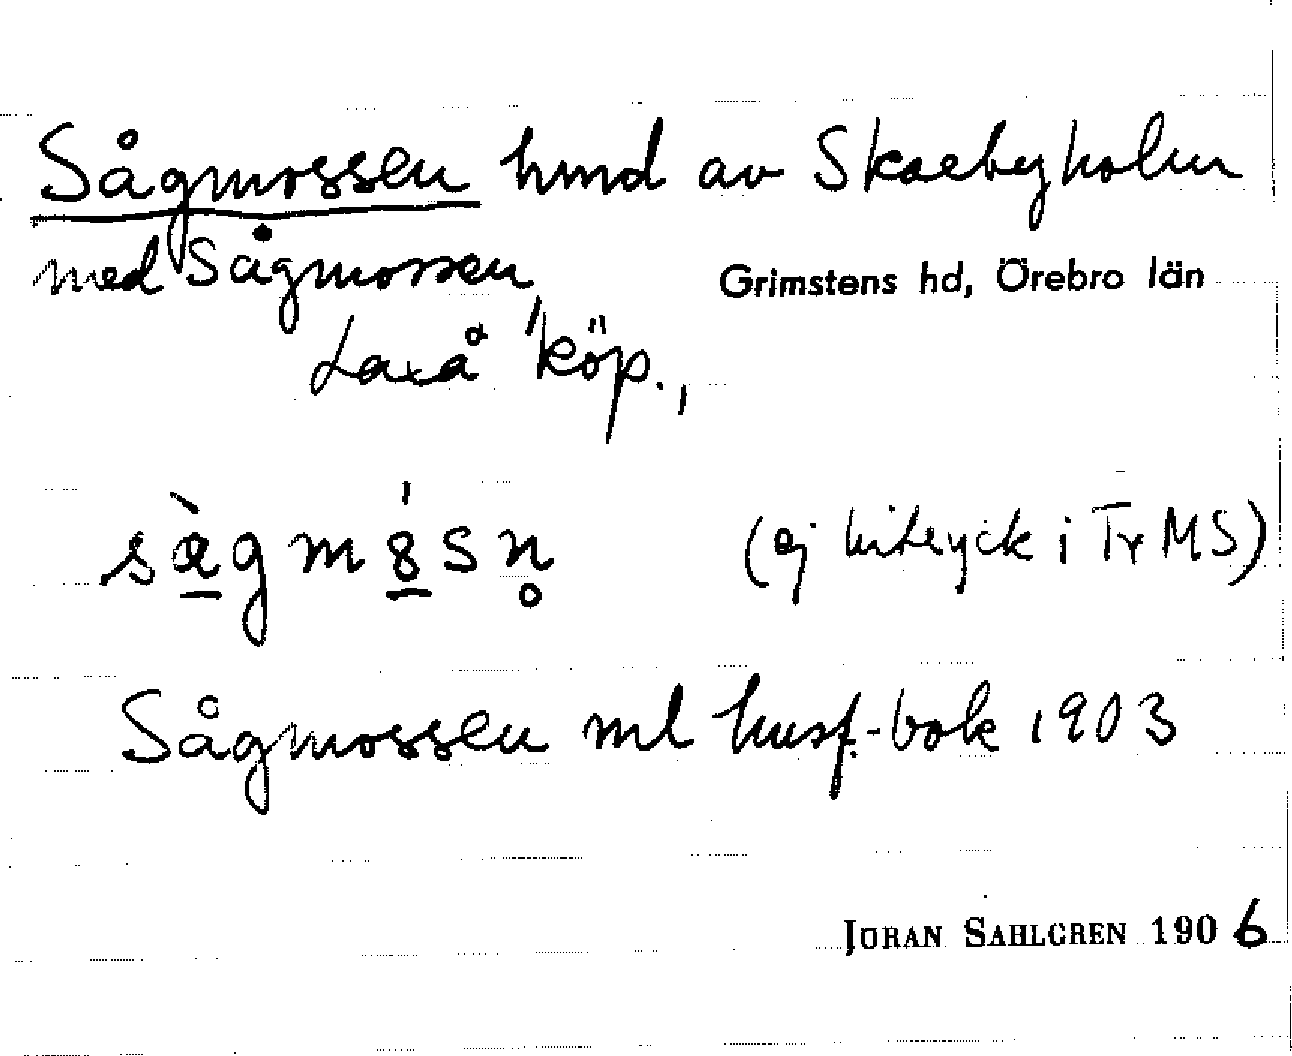 Sågmossen hmd av Skaebyholm
med Sågmossen, Grimstens hd, Örebro län
Laxå köp.,
(ej uttryck i Tr MS)
Sågmossen ml husf.-bok 1903
JÖRAN SAHLGREN 1906